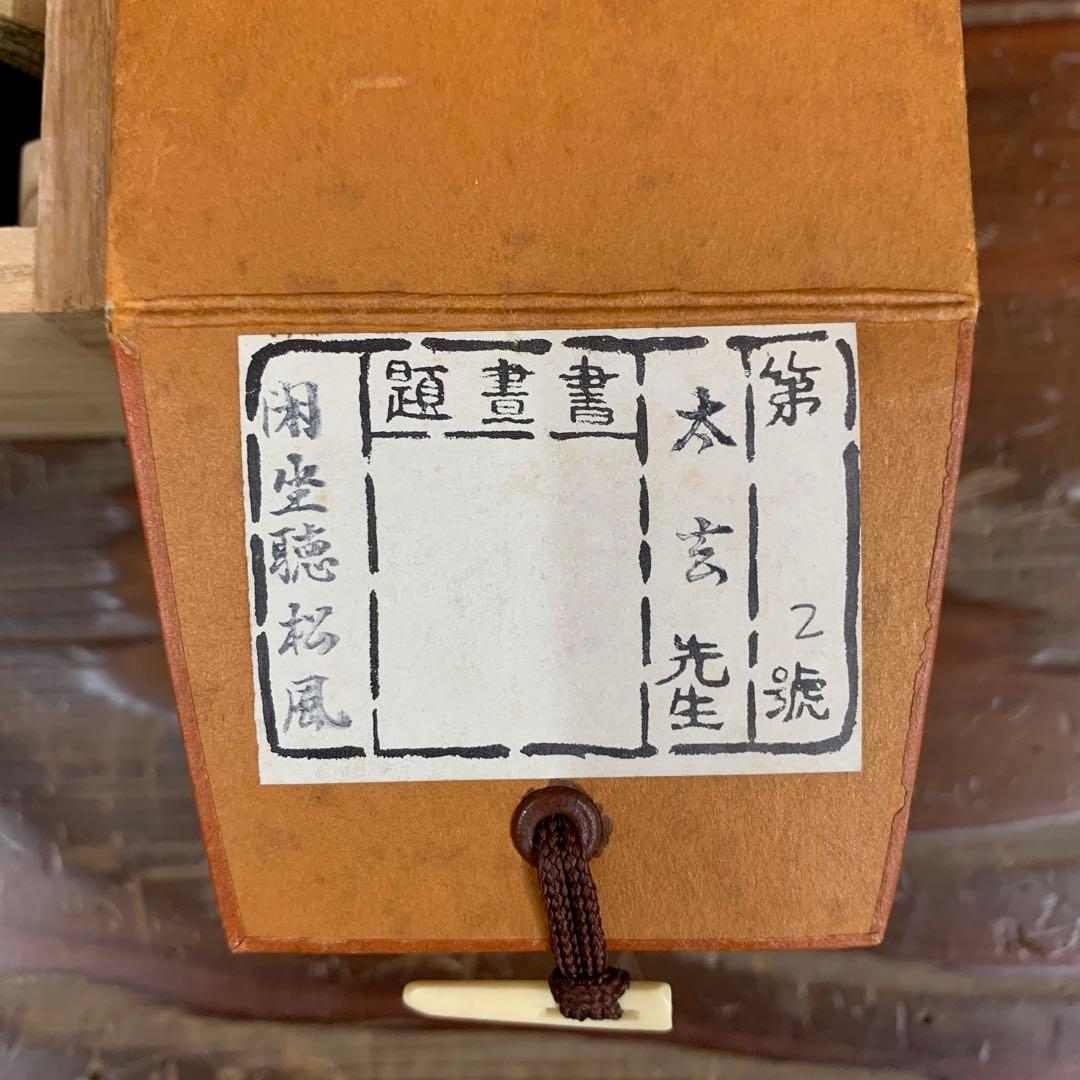 第 2 號
太玄先生
書畫題
閑坐聴松風